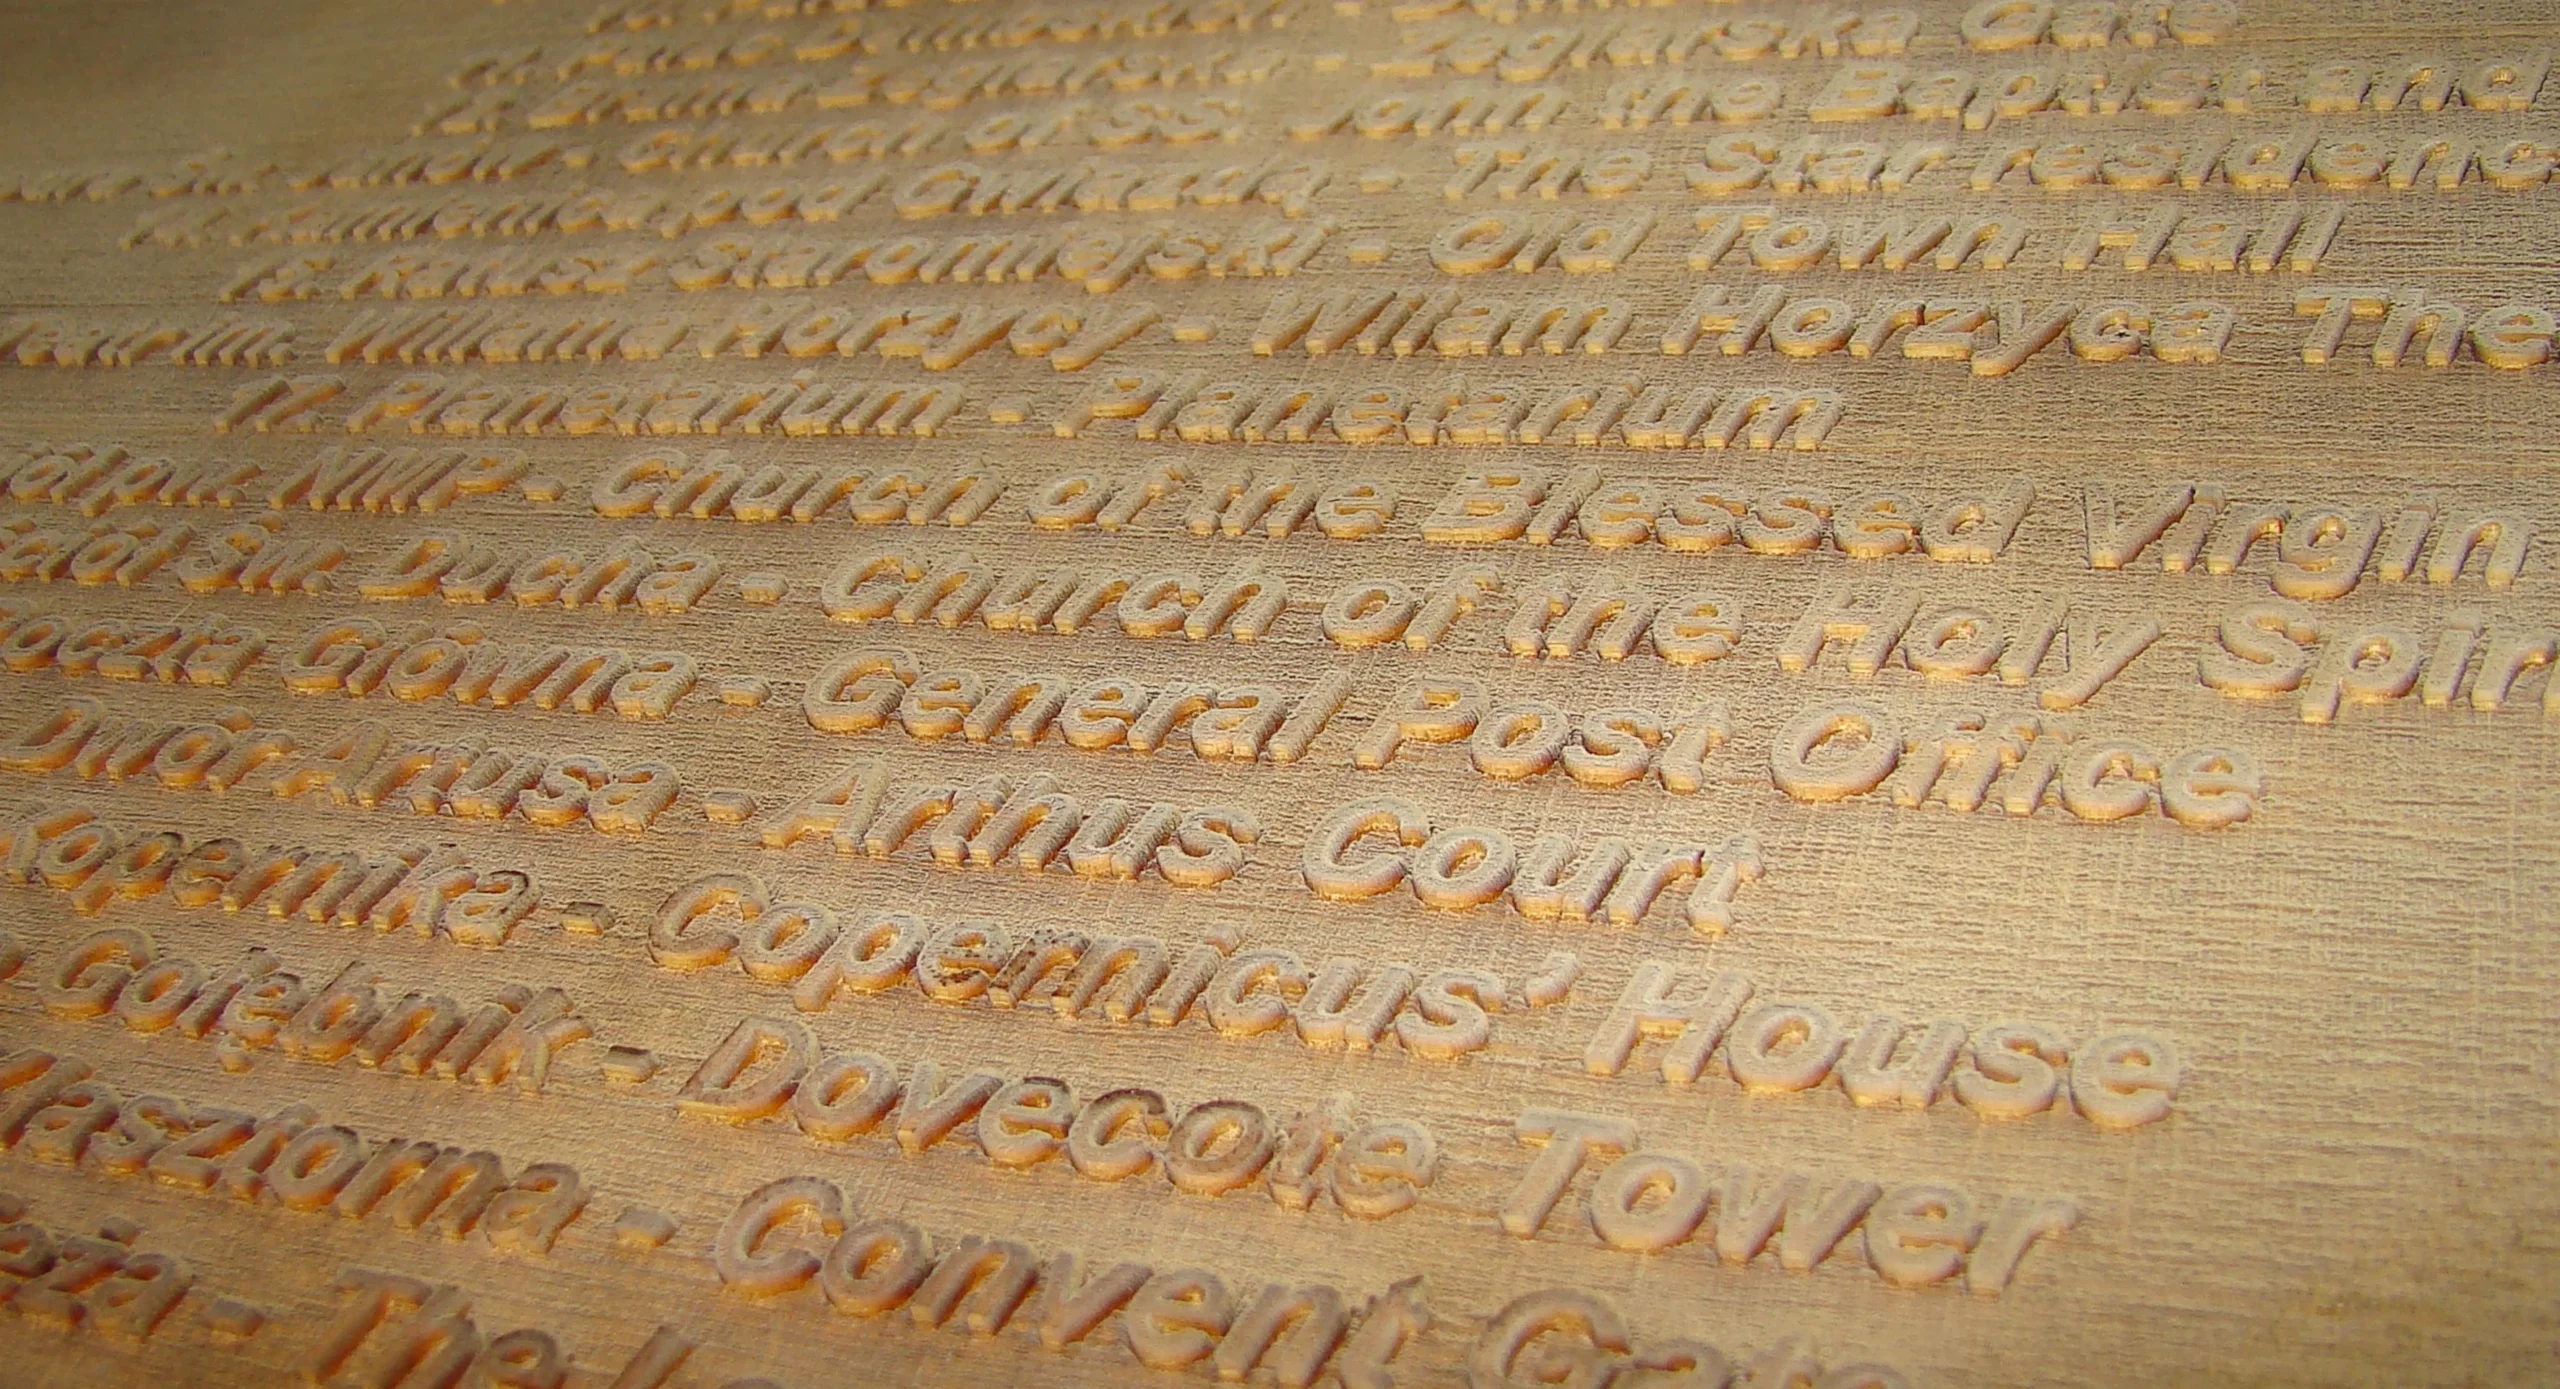 Żeglarska - Żeglarska Gate
Church of SS. John the Baptist and
Kamienica pod Gwiazdą - The Star residence
15. Ratusz Staromiejski - Old Town Hall
Teatr im. Wiliama Horzycy - Wilam Horzyca The
17. Planetarium - Planetarium
NMP - Church of the Blessed Virgin
Św. Ducha - Church of the Holy Spiri
Poczta Główna - General Post Office
Dwór Artusa - Arthus Court
Kopernika - Copernicus' House
Gołębnik - Dovecote Tower
Klasztorna - Convent Gate
eża - The